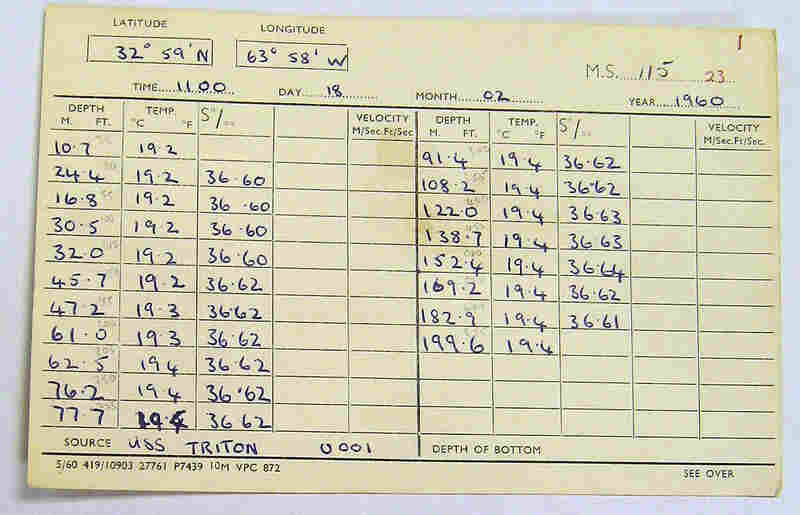 LATITUDE LONGITUDE
32° 59' N 63° 58' W 1
M.S. 115 23
TIME 11.00 DAY 18 MONTH 02 YEAR 1960
DEPTH TEMP. S°/oo VELOCITY DEPTH TEMP. S°/oo VELOCITY
M. FT. °C °F M/Sec.Ft/Sec M. FT. °C °F M/Sec.Ft/Sec.
10.7 19.2 91.4 19.4 36.62
24.4 19.2 36.60 108.2 19.4 36.62
16.8 19.2 36.60 122.0 19.4 36.63
30.5 19.2 36.60 138.7 19.4 36.63
32.0 19.2 36.60 152.4 19.4 36.64
45.7 19.2 36.62 169.2 19.4 36.62
47.2 19.3 36.62 182.9 19.4 36.61
61.0 19.3 36.62 199.6 19.4
62.5 19.4 36.62
76.2 19.4 36.62
77.7 19.4 36.62
SOURCE USS TRITON U001 DEPTH OF BOTTOM
5/60 419/10903 27761 P7439 10M VPC 872 SEE OVER